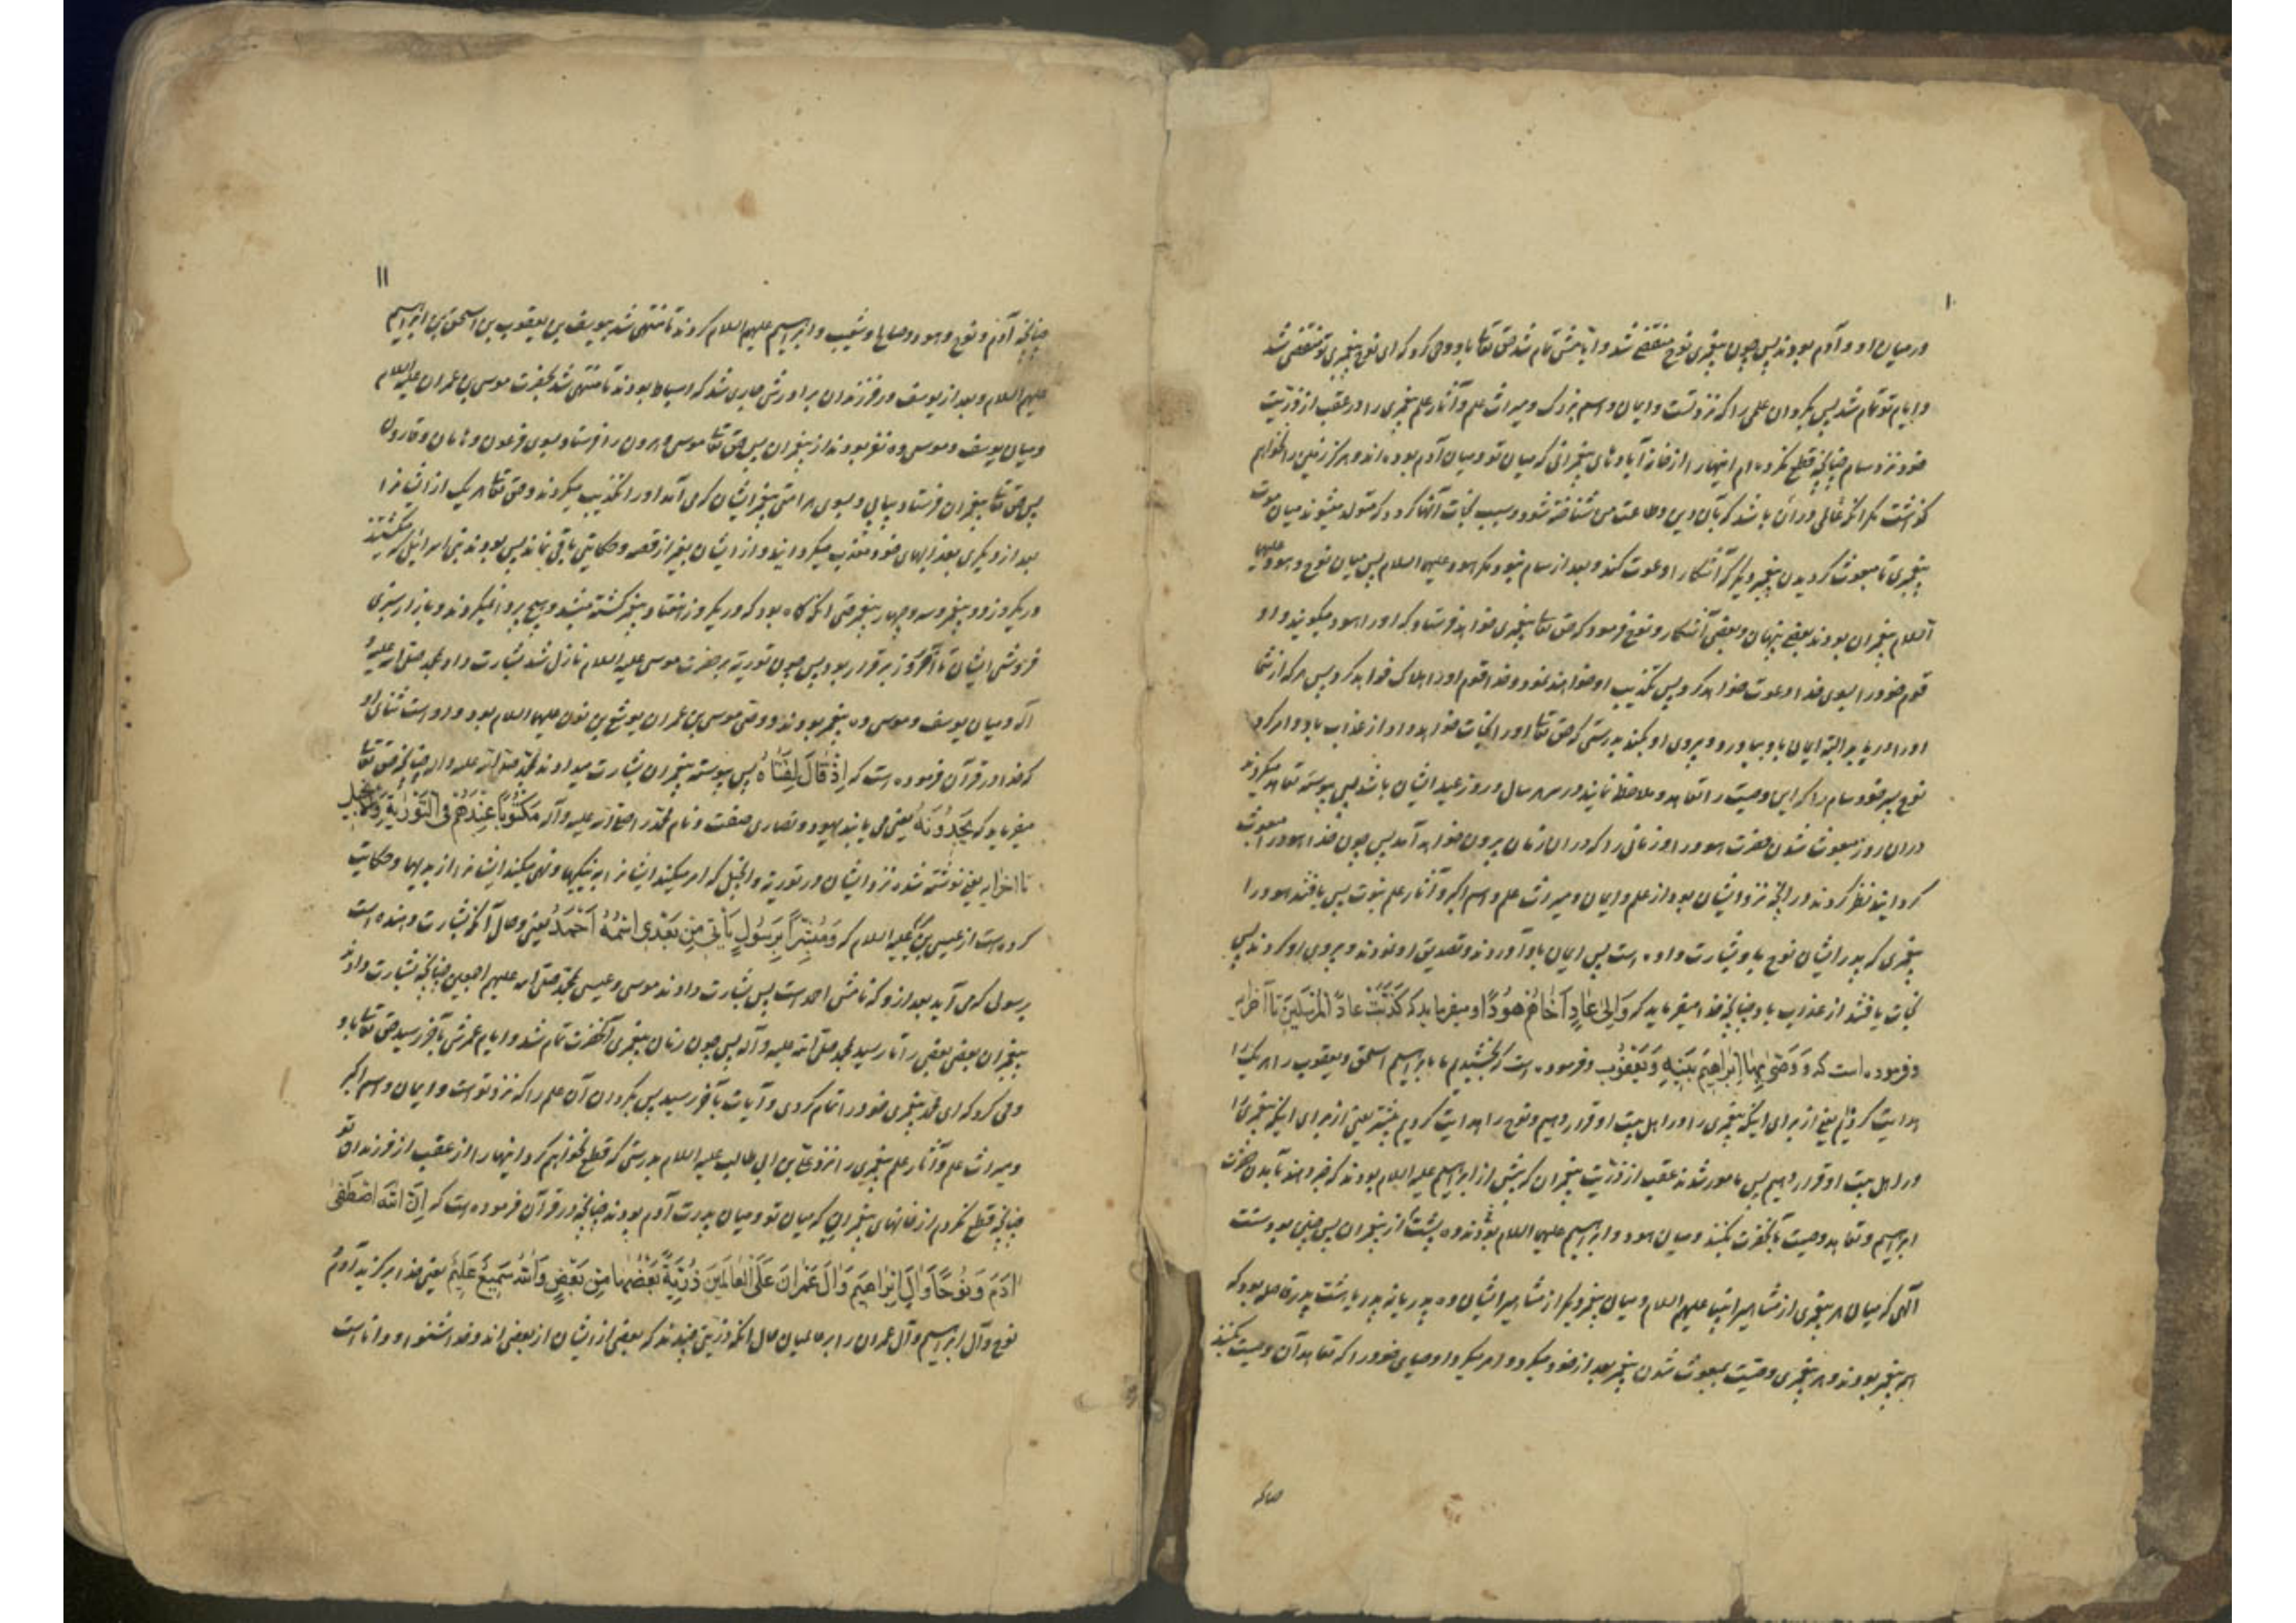 ۱۰
در میان او و آدم بودند پس چون پیغمبری نوح منقضی شد و ایامش تمام شد حق تعالی باو وحی کرد که ای نوح پیغمبری تو منقضی شد
و ایام تو تمام شد پس بگردان علمی را که نزد تست و ایمان و اسم بزرگ و میراث علم و آثار علم پیغمبری را در عقب از ذریت
خود نزد سام چنانچه قطع نکرده‌ام اینها را از خانه آباد های پیغمبرانی که میان تو و میان آدم بوده‌اند و هرگز زمین را نخواهم
گذاشت مگر آنکه عالمی در آن باشد که بآن دین و طاعت من شناخته شود و سبب نجات آنها گردد که متولد میشوند میان موت
پیغمبری تا مبعوث گردیدن پیغمبر دیگر که آشکارا دعوت کند و بعد از سام نبود مگر هود علیهما السلام پس میان نوح و هود علیهما
السلام پیغمبران بودند بعضی پنهان و بعضی آشکار و نوح فرمود که حق تعالی پیغمبری خواهد فرستاد که او را هود میگویند و او
قوم خود را بسوی خدا دعوت خواهد کرد پس تکذیب او خواهند نمود و خدا قوم او را هلاک خواهد کرد پس هر که از شما
او را دریابد البته ایمان باو بیاورد و پیروی او بکند بدرستی که حق تعالی او را نجات خواهد داد از عذاب باد و امر کرد
نوح پسر خود سام را که این وصیت را تعاهد و ملاحظه نمایند در سر هر سال و روز عید ایشان باشد پس پیوسته تعاهد میکردند
در آن روز مبعوث شدن حضرت هود را و زمانی را که در آن زمان بیرون خواهد آمد پس چون خدا هود را مبعوث
گردانید نظر کردند در آنچه نزد ایشان بود از علم و ایمان و میراث علم و اسم اکبر و آثار علم نبوت پس یافتند هود را
پیغمبری که پدر ایشان نوح باو بشارت داده است پس ایمان باو آوردند و تصدیق او نمودند و پیروی او کردند پس
نجات یافتند از عذاب باد چنانچه خدا میفرماید که وَاِلیٰ عَادٍ اَخَاهُمْ هُودًا و میفرماید که کَذَّبَتْ عَادٌ الْمُرْسَلِینَ تا آخر آیه
و فرموده است که وَ وَصّیٰ بِهَا اِبْراهِیمُ بَنِیهِ وَ یَعْقُوبُ و فرموده است که بخشیدیم ما بابراهیم اسحق و یعقوب را هر یک را
هدایت کردیم یعنی از برای اینکه پیغمبری را در اهل بیت او قرار دهیم و نوح را هدایت کردیم پیشتر یعنی از برای اینکه پیغمبری را
در اهل بیت او قرار دهیم پس مامور شدند عقب از ذریت پیغمبران که پیش از ابراهیم علیه السلام بودند که خبر دهند بآمدن حضرت
ابراهیم و تعاهد وصیت بآنحضرت بکنند و میان هود و ابراهیم علیهما السلام بودند ده پشت از پیغمبران پس چنین بود سنت
الهی که میان هر پیغمبری از مشاهیر انبیا علیهم السلام و میان پیغمبر دیگر از مشاهیر ایشان ده پدر یا نه پدر یا هشت پدر فاصله بود که
همه پیغمبر بودند و هر پیغمبری وصیت بمبعوث شدن پیغمبر بعد از خود میکرد و امر میکرد اوصیای خود را که تعاهد آن وصیت بکنند
چنانکه
۱۱
چنانچه آدم و نوح و هود و صالح و شعیب و ابراهیم علیهم السلام کردند تا منتهی شد بیوسف بن یعقوب بن اسحق بن ابراهیم
علیهم السلام و بعد از یوسف در فرزندان برادرش جاری شد که اسباط بودند تا منتهی شد بحضرت موسی بن عمران علیه السلام
و میان یوسف و موسی ده نفر بودند از پیغمبران پس حق تعالی موسی و هرون را فرستاد بسوی فرعون و هامان و قارون
پس حق تعالی پیغمبران فرستاد پیاپی و بسوی هر امتی پیغمبر ایشان که می آمد او را تکذیب میکردند و حق تعالی هر یک از ایشانرا
بعد از دیگری بعذابهای خود معذب میگردانید و از ایشان بغیر از قصه و حکایتی باقی نماند پس بودند بنی اسرائیل که میکشتند
در یکروز دو پیغمبر و سه و چهار پیغمبر حتی آنکه گاه بود که در یکروز هفتاد پیغمبر کشته میشد و هیچ پروا نمیکردند و بازار سبزی
فروشی ایشان تا آخر روز برقرار بود پس چون توریة بر حضرت موسی علیه السلام نازل شد بشارت داد بمحمد صلی الله علیه و
آله و میان یوسف و موسی ده پیغمبر بودند و وصی موسی بن عمران یوشع بن نون علیهما السلام بود و اوست فتای او
که خدا در قرآن فرموده است که اِذْ قَالَ لِفَتَاهُ پس پیوسته پیغمبران بشارت میدادند بمحمد صلی الله علیه و اله چنانچه حق تعالی
میفرماید که یَجِدُونَهُ یعنی می یابند یهود و نصاری صفت و نام محمد را صلی الله علیه و آله مَکْتُوبًا عِنْدَهُمْ فِی التَّوْرٰیةِ وَالْاِنْجِیلِ
تا آخر آیه یعنی نوشته شده نزد ایشان در توریة و انجیل که امر میکند ایشانرا به نیکیها و نهی میکند ایشانرا از بدیها و حکایت
کرده است از عیسی بن مریم علیه السلام که وَ مُبَشِّرًا بِرَسُولٍ یَاْتِی مِنْ بَعْدِی اسْمُهُ اَحْمَدُ یعنی و حال آنکه بشارت دهنده است
برسولی که می آید بعد از او که نامش احمد است پس بشارت دادند موسی و عیسی بمحمد صلی الله علیهم اجمعین چنانچه بشارت دادند
پیغمبران بعضی بعضی را تا رسید بمحمد صلی الله علیه و آله پس چون زمان پیغمبری آنحضرت تمام شد و ایام عمرش بآخر رسید حق تعالی باو
وحی کرد که ای محمد پیغمبری خود را تمام کردی و آیات بآخر رسید پس بگردان آن علم را که نزد توست و ایمان و اسم اکبر
و میراث علم و آثار علم پیغمبری را نزد علی بن ابی طالب علیه السلام بدرستی که قطع نخواهم کرد اینها را از عقب از فرزندان تو
چنانچه قطع نکردم از خانهای پیغمبران که میان تو و میان پدرت آدم بودند چنانچه در قرآن فرموده است که اِنَّ اللهَ اصْطَفیٰ
اٰدَمَ وَ نُوحًا وَ اٰلَ اِبْراهِیمَ وَ اٰلَ عِمْرانَ عَلَی الْعَالَمِینَ ذُرِّیَّةً بَعْضُهَا مِنْ بَعْضٍ وَ اللهُ سَمِیعٌ عَلِیمٌ یعنی خدا برگزید آدم و
نوح و آل ابراهیم و آل عمران را بر عالمیان حال آنکه ذریتی چندند که بعضی از ایشان از بعضی اند و خدا شنوا و دانا است